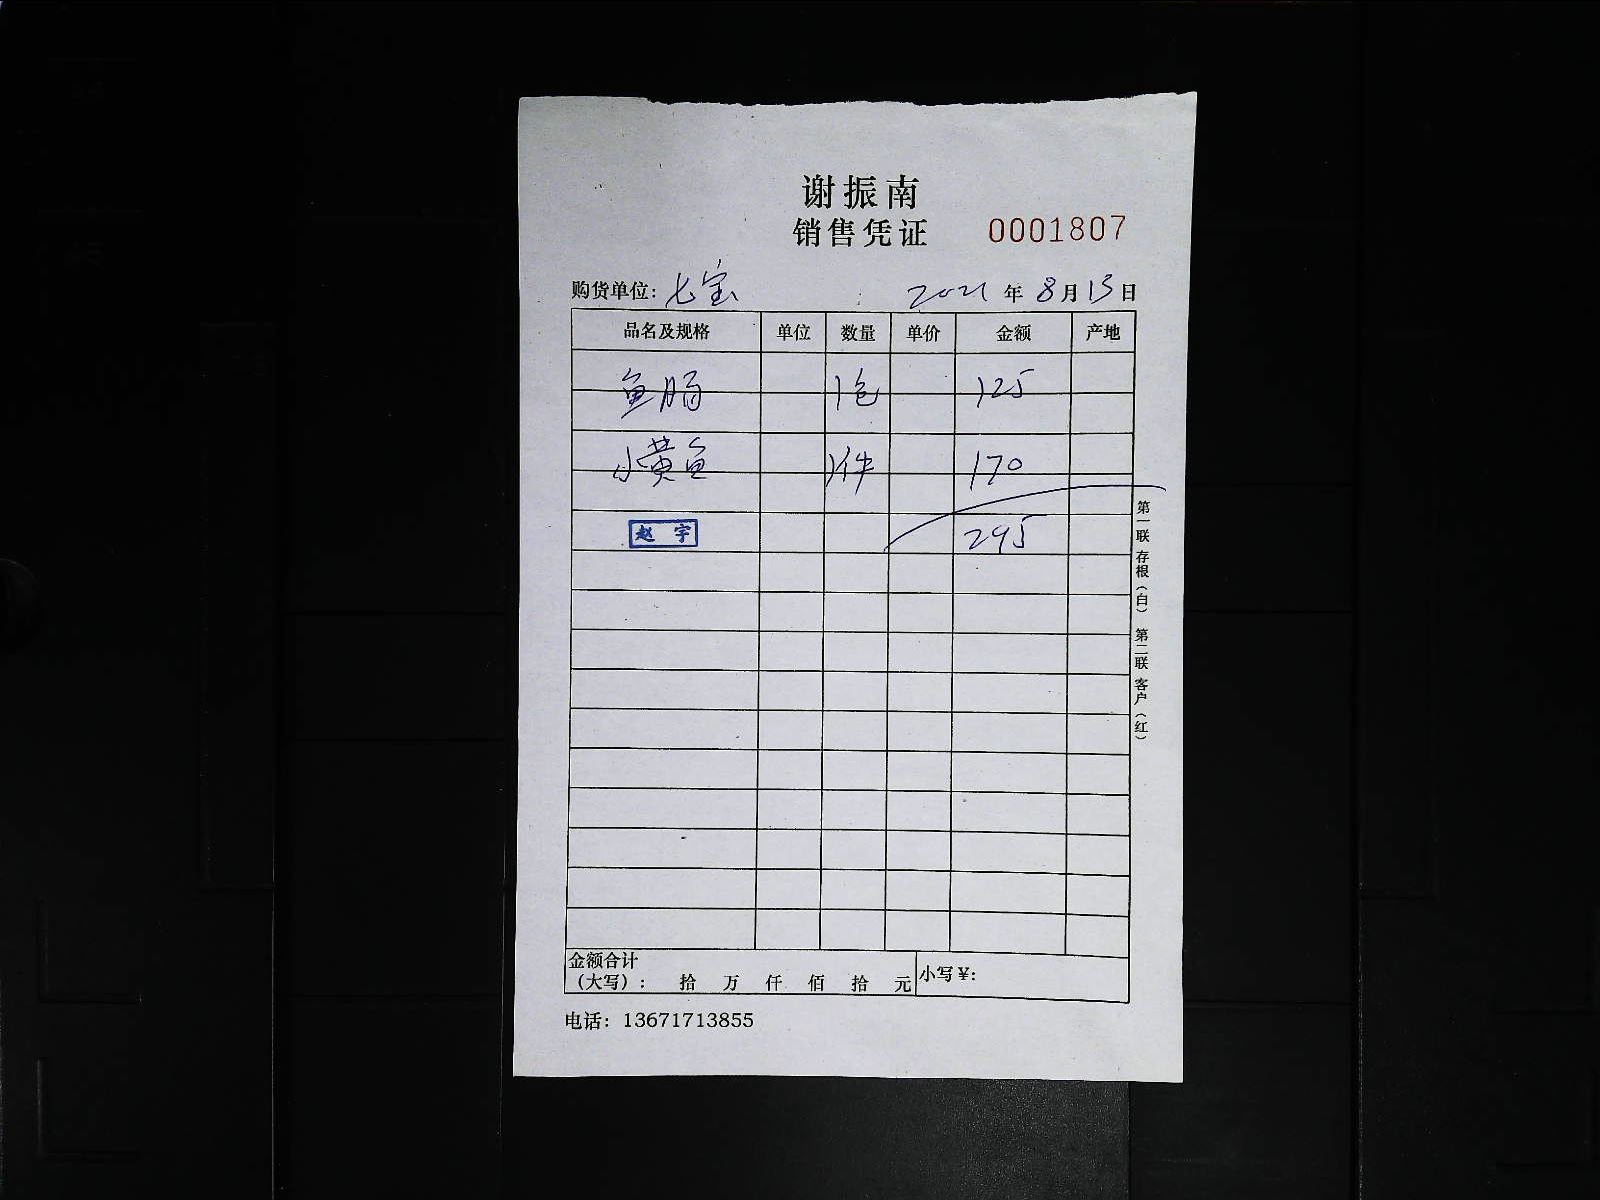 谢振南
销售凭证 0001807
购货单位: 七宝 2021年8月13日
品名及规格 单位 数量 单价 金额 产地
鱼肠 1包 125
小黄鱼 1件 170
赵宇 295
第一联 存根(白) 第二联 客户(红)
金额合计
(大写): 拾 万 仟 佰 拾 元 小写¥:
电话: 13671713855